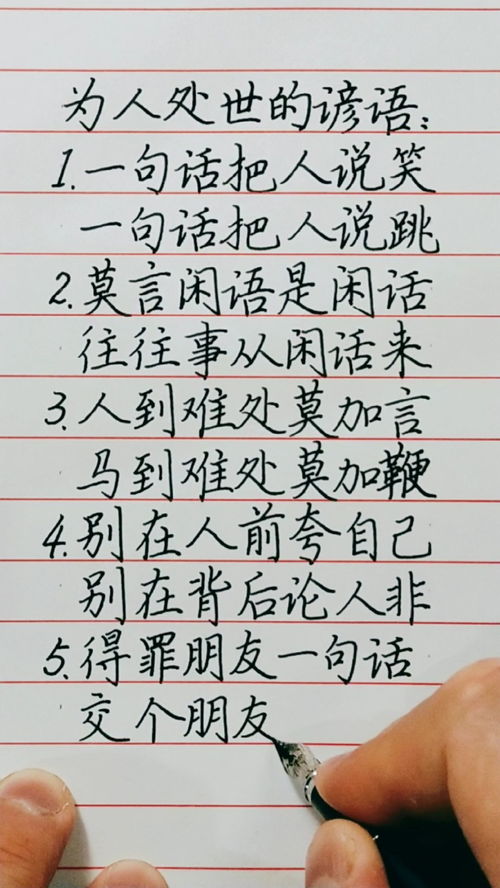 为人处世的谚语:
1.一句话把人说笑
一句话把人说跳
2.莫言闲语是闲话
往往事从闲话来
3.人到难处莫加言
马到难处莫加鞭
4.别在人前夸自己
别在背后论人非
5.得罪朋友一句话
交个朋友